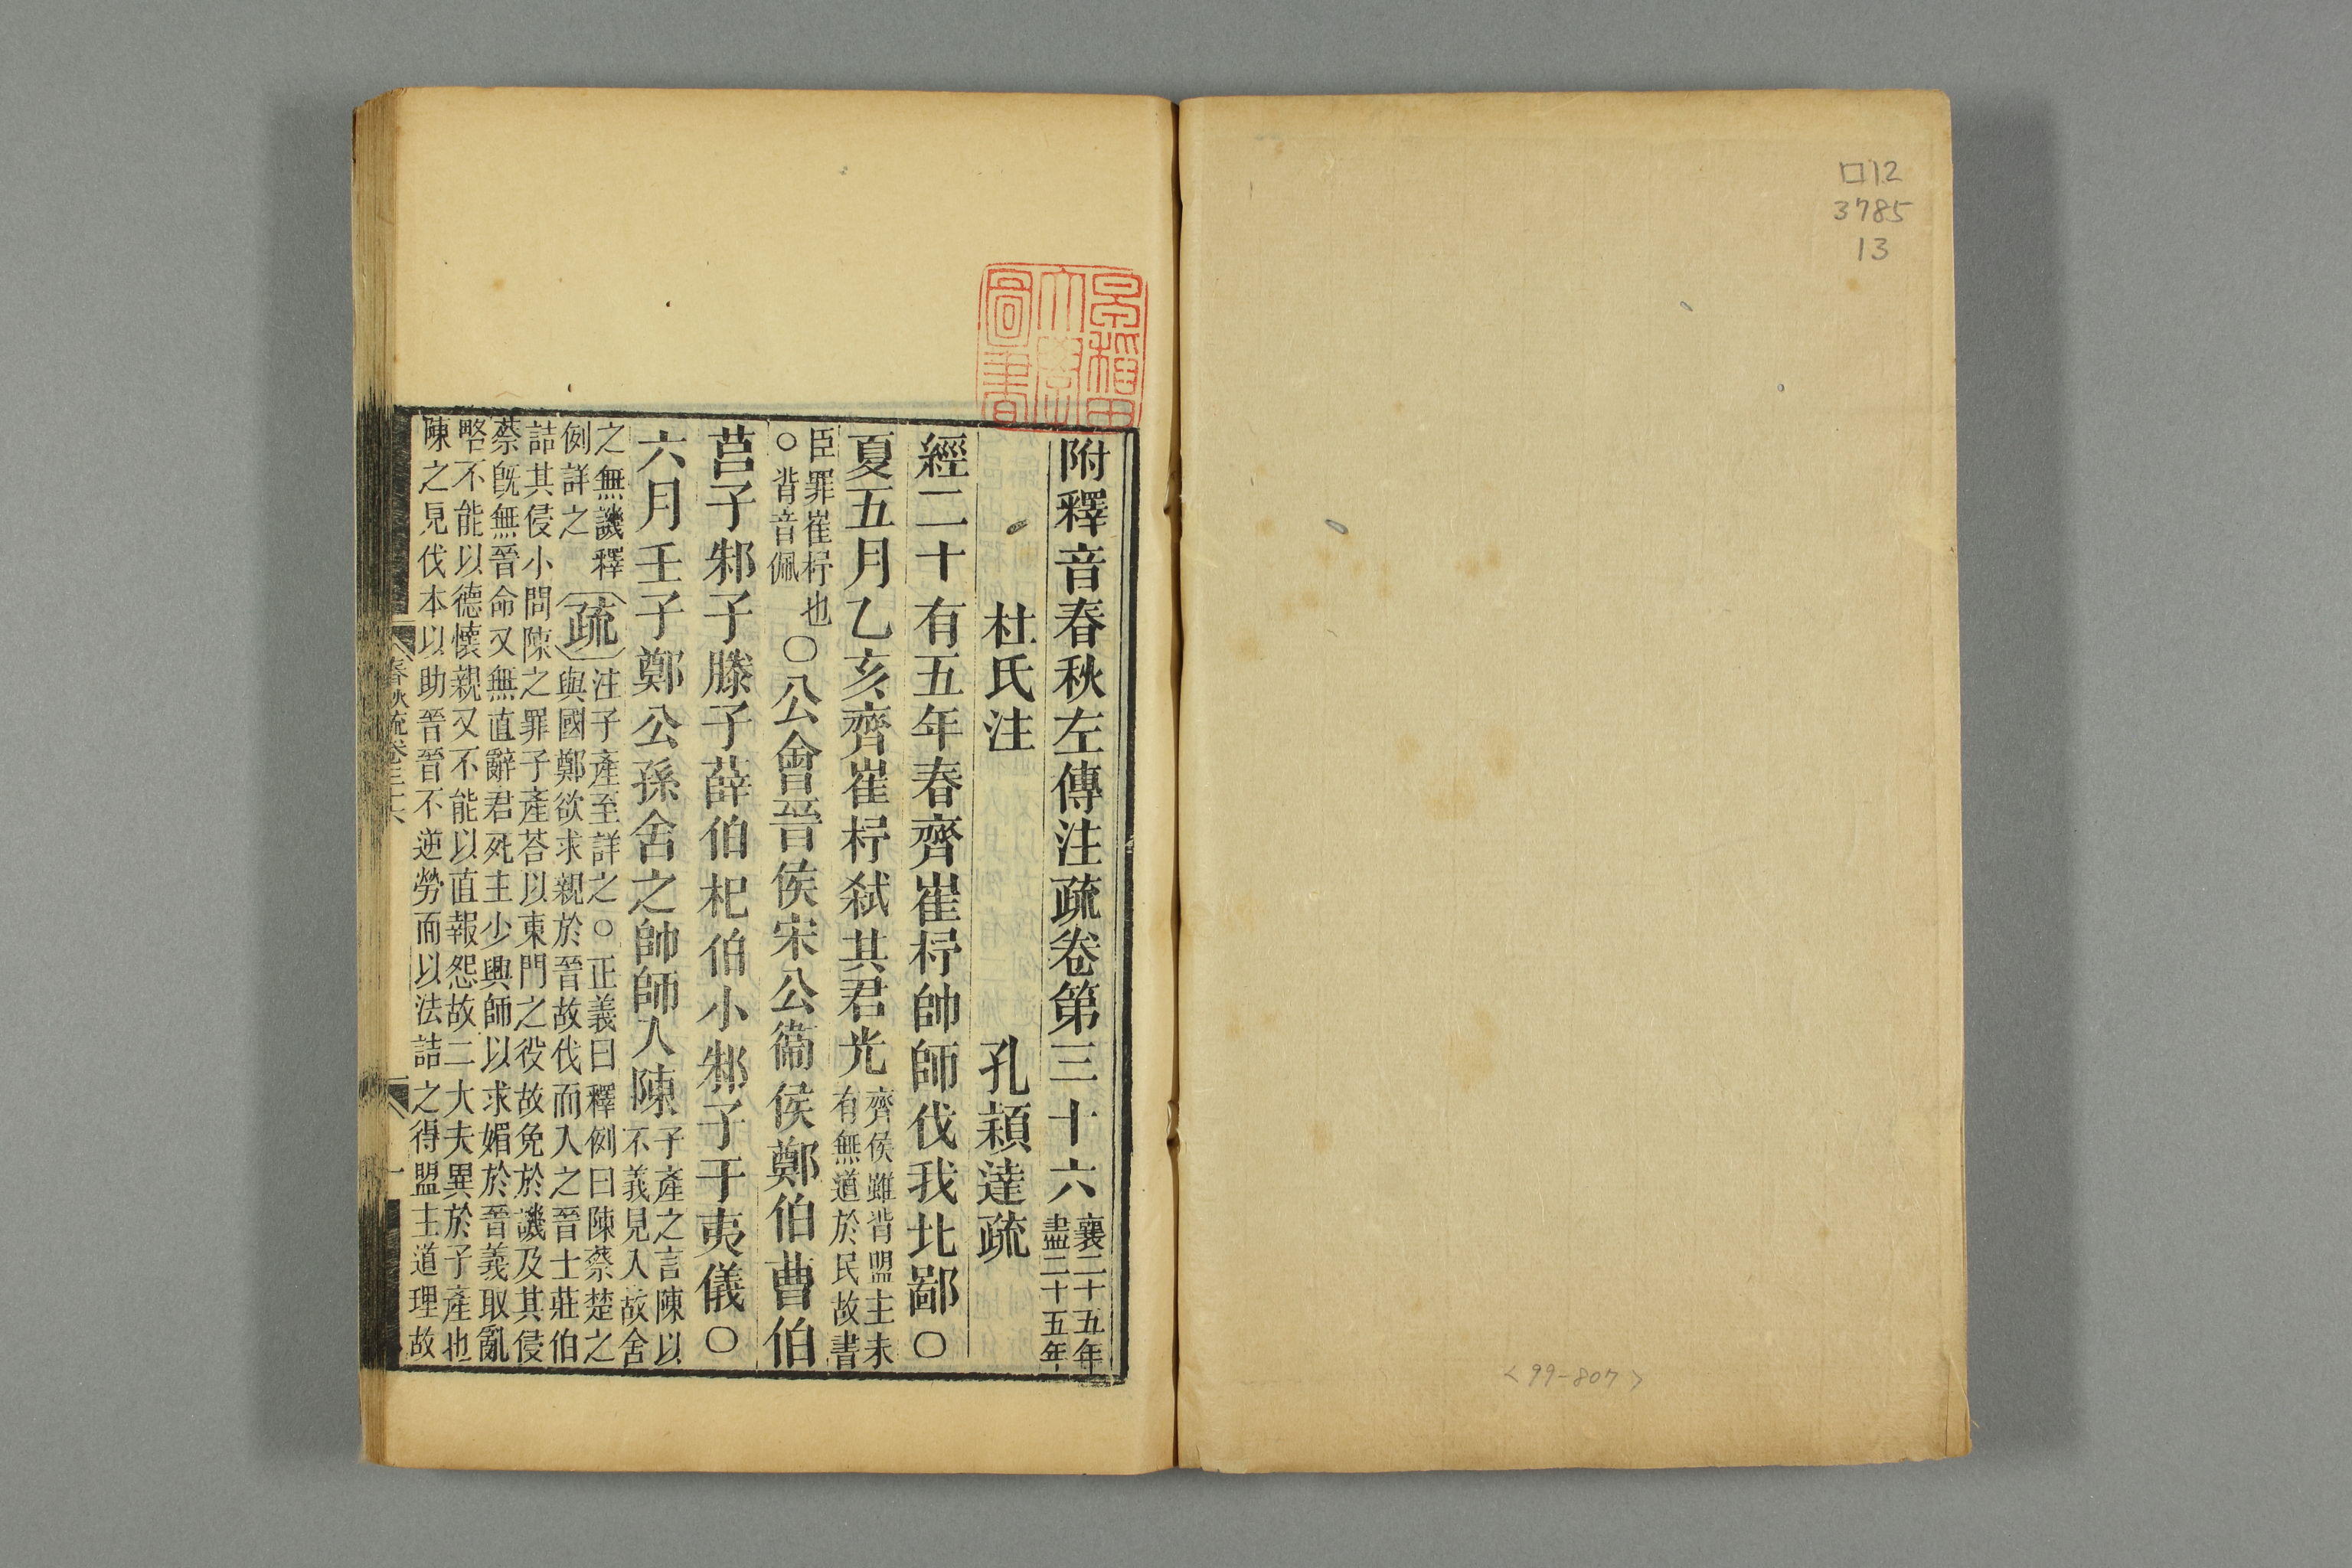 口12
3785
13
<99-807>
早稲田
大學
圖書
附釋音春秋左傳注疏卷第三十六
襄二十五年
盡二十五年
杜氏注 孔穎達疏
經二十有五年春齊崔杼帥師伐我北鄙〇
夏五月乙亥齊崔杼弑其君光
齊侯雖背盟主未
有無道於民故書
臣罪崔杼也
〇背音佩
〇公會晉侯宋公衞侯鄭伯曹伯
莒子邾子滕子薛伯杞伯小邾子于夷儀〇
六月壬子鄭公孫舍之帥師入陳
子產之言陳以
不義見入故舍
之無譏釋
例詳之
疏
注子產至詳之〇正義曰釋例曰陳蔡楚之
與國鄭欲求親於晉故伐而入之晉士莊伯
詰其侵小問陳之罪子產荅以東門之役故免於譏及其侵
蔡旣無晉命又無直辭君死主少興師以求媚於晉義取亂
略不能以德懷親又不能以直報怨故二大夫異於子產也
陳之見伐本以助晉晉不逆勞而以法詰之得盟主道理故
春秋疏卷三十六
一